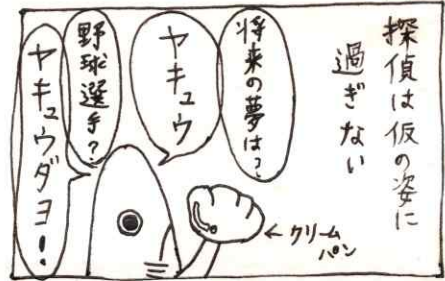 探偵は仮の姿に
過ぎない
将来の夢は?
ヤキュウ
野球選手?
ヤキュウダヨ!
←クリーム
パン